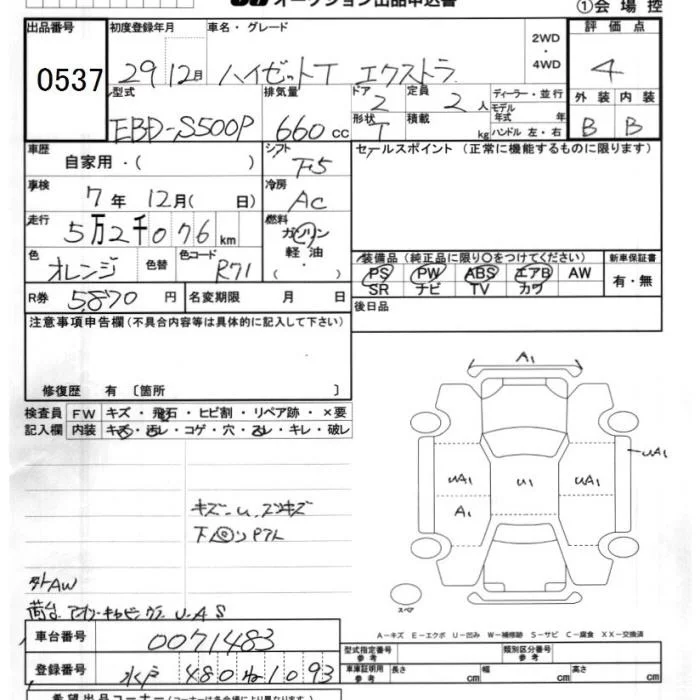 オークション出品申込書
①会場控
出品番号 初度登録年月 車名・グレード 2WD・4WD 評価点
0537 29 12月 ハイゼットT エクストラ 4
型式 排気量 ドア 定員 ディーラー・並行 外装 内装
EBD-S500P 660cc 2 2人 モデル年式 年 B B
形状 T 積載 kg ハンドル 左・右
車歴 シフト セールスポイント (正常に機能するものに限ります)
自家用・( ) F5
車検 冷房
7年 12月( 日) AC
走行 燃料
5万2千076km ガソリン
色 色替 色コード 軽油
オレンジ R71 ・( )
装備品 (純正品に限り〇をつけてください) 新車保証書
PS PW ABS エアB AW 有・無
SR ナビ TV カワ
R券 5870円 名変期限 月 日 後日品
注意事項申告欄(不具合内容等は具体的に記入して下さい)
修復歴 有 〔箇所 〕
検査員 FW キズ・飛石・ヒビ割・リペア跡・×要
記入欄 内装 キズ・汚レ・コゲ・穴・スレ・キレ・破レ
A1
UA1
UA1 U1 UA1
A1
キズ-U、スジキズ
スペア
外AW
荷台
U-AS
A-キズ E-エクボ U-凹み W-補修跡 S-サビ C-腐食 XX-交換済
車台番号 0071483
型式指定番号 参考 類別区分番号 参考
登録番号 水戸 480 ね 1093
車庫証明用 参考 長さ cm 幅 cm 高さ cm
希望出品コーナー(コーナーは各会場により異なります)